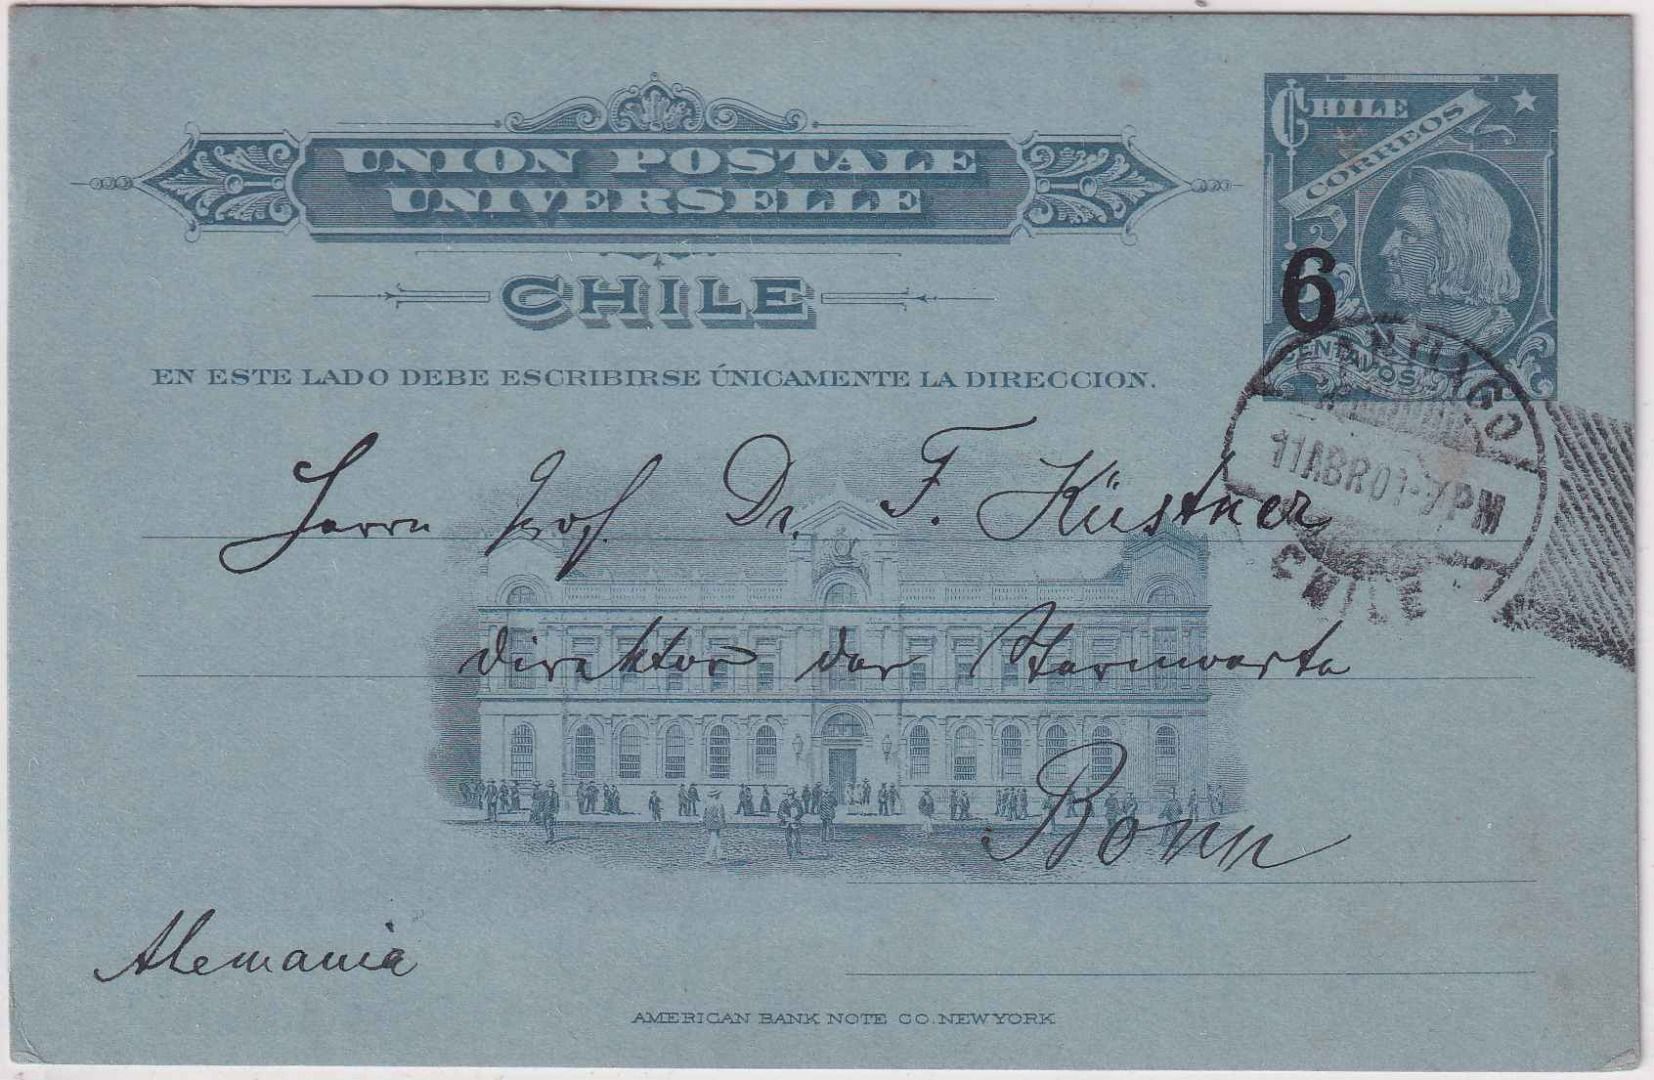 UNION POSTALE
UNIVERSELLE
CHILE
CORREOS
CHILE
6
CENTAVOS
EN ESTE LADO DEBE ESCRIBIRSE ÚNICAMENTE LA DIRECCION.
SANTIAGO
11ABR01-7PM
CHILE
Herrn Prof. Dr. F. Küstner
Direktor der Sternwarte
Bonn
Alemania
AMERICAN BANK NOTE CO. NEW YORK